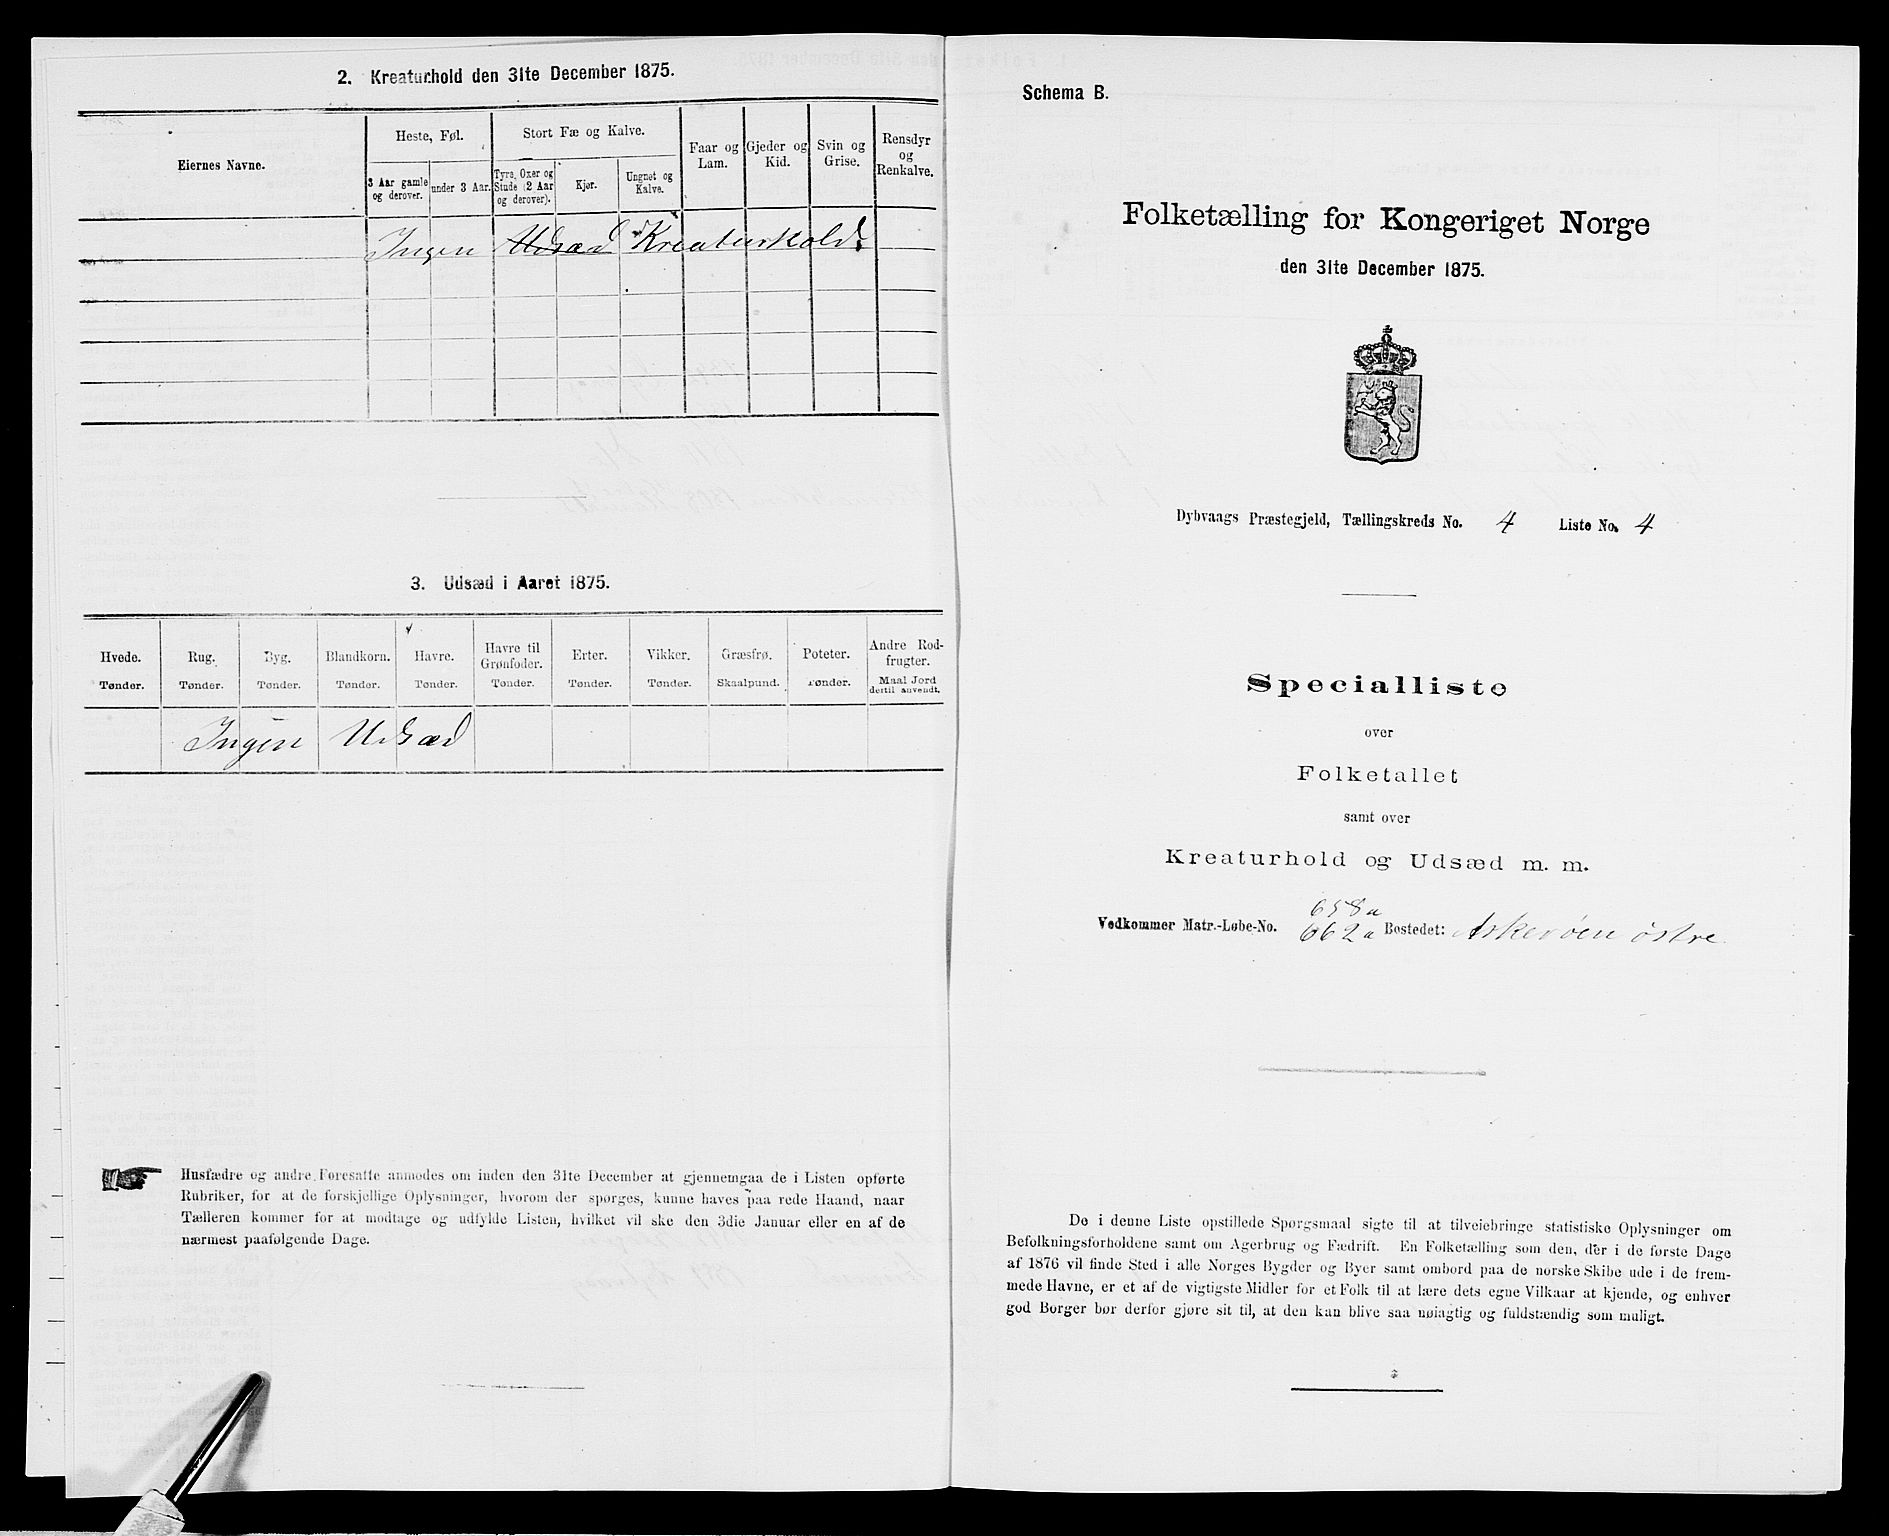 2. Kreaturhold den 31te December 1875.
Eiernes Navne.
Heste, Føl.
3 Aar gamle og derover.
under 3 Aar.
Stort Fæ og Kalve.
Tyre, Oxer og Stude (2 Aar og derover).
Kjør.
Ungnet og Kalve.
Faar og Lam.
Gjeder og Kid.
Svin og Grise.
Rensdyr og Renkalve.
Ingen Udsæd Kreaturhold.
3. Udsæd i Aaret 1875.
Hvede. Tønder.
Rug. Tønder.
Byg. Tønder.
Blandkorn. Tønder.
Havre. Tønder.
Havre til Grønfoder. Tønder.
Erter. Tønder.
Vikker. Tønder.
Græsfrø. Skaalpund.
Poteter. Tønder.
Andre Rodfrugter. Maal Jord dertil anvendt.
Ingen Udsæd
Husfædre og andre Foresatte anmodes om inden den 31te December at gjennemgaa de i Listen opførte
Rubriker, for at de forskjellige Oplysninger, hvorom der spørges, kunne haves paa rede Haand, naar
Tælleren kommer for at modtage og udfylde Listen, hvilket vil ske den 3die Januar eller en af de
nærmest paafølgende Dage.
Schema B.
Folketælling for Kongeriget Norge
den 31te December 1875.
Dybvaags Præstegjeld, Tællingskreds No. 4 Liste No. 4
Specialliste
over
Folketallet
samt over
Kreaturhold og Udsæd m. m.
658a
Vedkommer Matr.-Løbe-No. 662a Bostedet: Askerøen østre.
De i denne Liste opstillede Spørgsmaal sigte til at tilveiebringe statistiske Oplysninger om
Befolkningsforholdene samt om Agerbrug og Fædrift. En Folketælling som den, der i de første Dage
af 1876 vil finde Sted i alle Norges Bygder og Byer samt ombord paa de norske Skibe ude i de frem-
mede Havne, er et af de vigtigste Midler for et Folk til at lære dets egne Vilkaar at kjende, og enhver
god Borger bør derfor gjøre sit til, at den kan blive saa nøiagtig og fuldstændig som muligt.